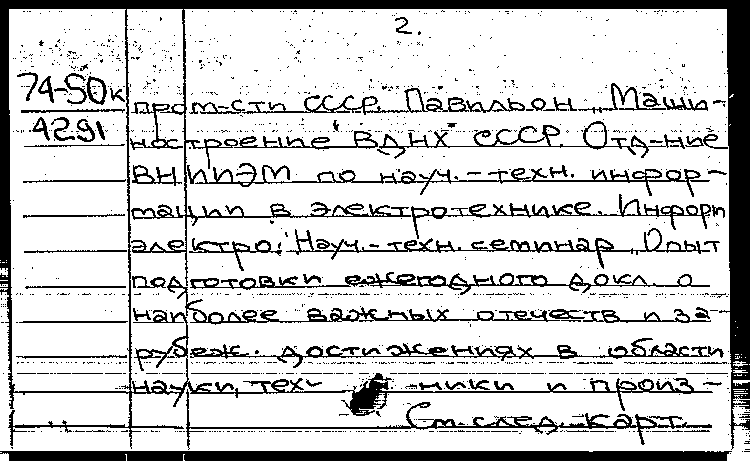 2.
74-50к
4291
пром-сти СССР. Павильон „Маши-
ностроение" ВДНХ СССР. Отд-ние
ВНИИЭМ по науч.-техн. инфор-
мации в электротехнике. Информ
электро. Науч.-техн. семинар „Опыт
подготовки ежегодного докл. о
наиболее важных отечеств и за-
рубеж. достижениях в области
науки, тех- -ники и произ-
См. след. карт.